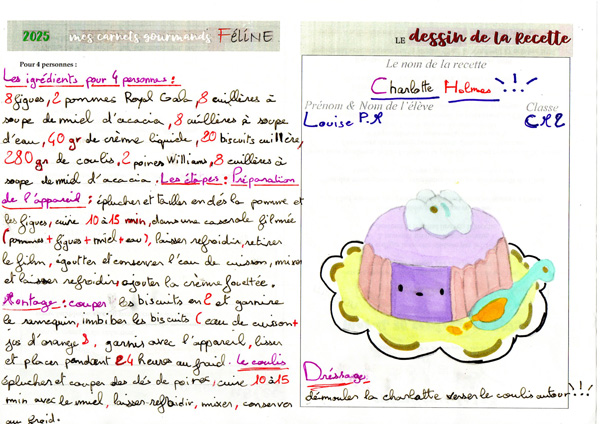 2025 mes carnets gourmands FÉLINE
Pour 4 personnes :
Les igrédients pour 4 personnes :
8 figues, 2 pommes Royal Gala, 8 cuillères à
soupe de miel d'acacia, 8 cuillères à soupe
d'eau, 40 gr de crème liquide, 20 biscuits cuillère,
280 grs de coulis, 2 poires Williams, 8 cuillères à
soupe de miel d'acacia. Les étapes : Préparation
de l'appareil : éplucher et tailler en dés la pomme et
les figues, cuire 10 à 15 min, dans une casserole filmée
(pommes + figues + miel + eau), laisser refroidir, retirer
le film, égoutter et conserver l'eau de cuisson, mixer
et laisser refroidir, ajouter la crème fouettée.
Montage : couper les biscuits en 2 et garnire
le ramequin, imbiber les biscuits (eau de cuisson +
jus d'orange), garnir avec l'appareil, lisser
et placer pendant 24 heures au froid. Le coulis
éplucher et couper des dés de poires, cuire 10 à 15
min avec le miel, laisser refroidir, mixer, conserver
au froid.
LE dessin de la Recette
Le nom de la recette
Charlotte Holmes !!!
Prénom & Nom de l'élève Classe
Louise P.A CM2
Dressage :
démouler la charlotte verser le coulis autour !!!